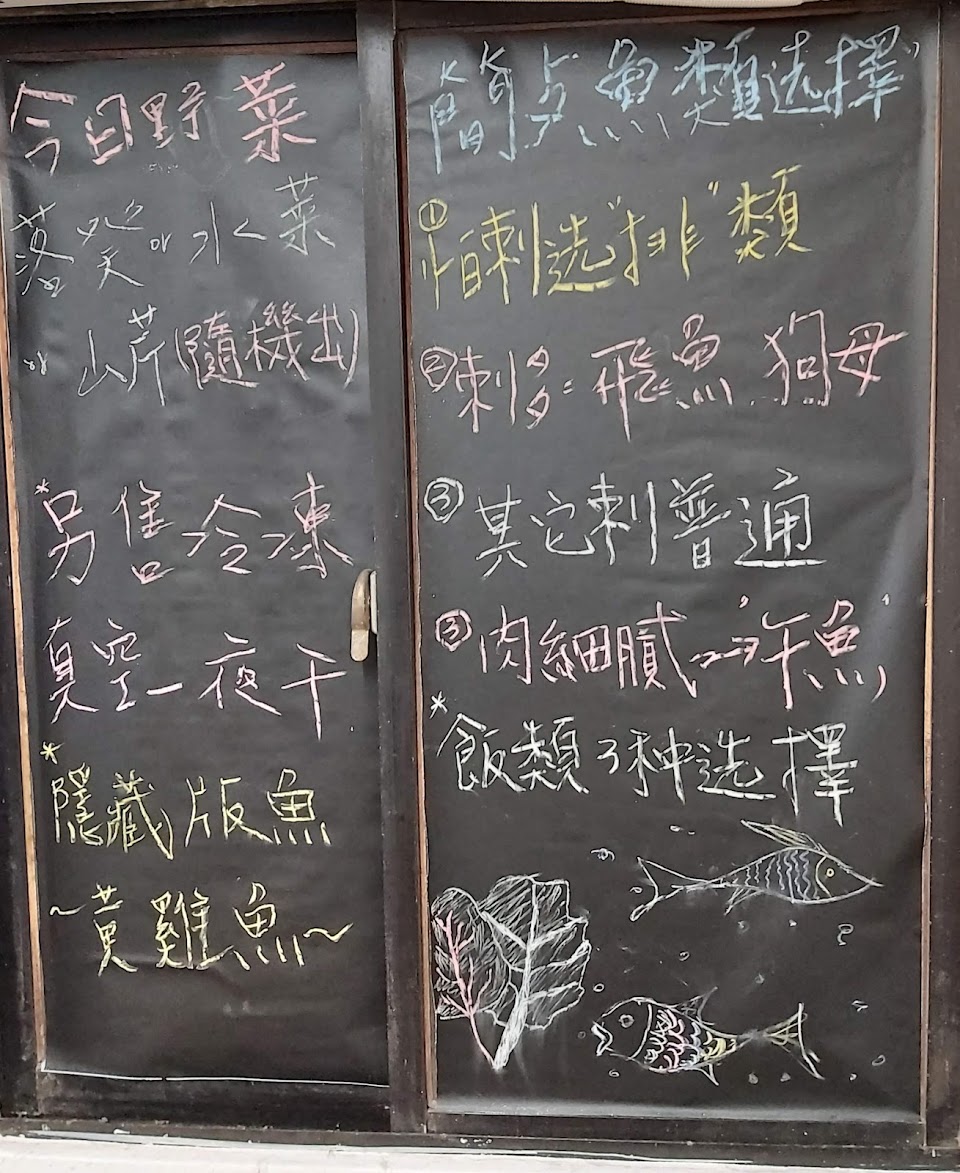 今日野菜
落癸 or 水菜
or 山芹(隨機出)
*另售冷凍
真空一夜干
*隱藏版魚
~黃雞魚~
簡点魚類选擇
①怕刺选"排"類
②刺多:飛魚 狗母
③其它刺普通
③肉細膩---"午魚"
*飯類3种选擇